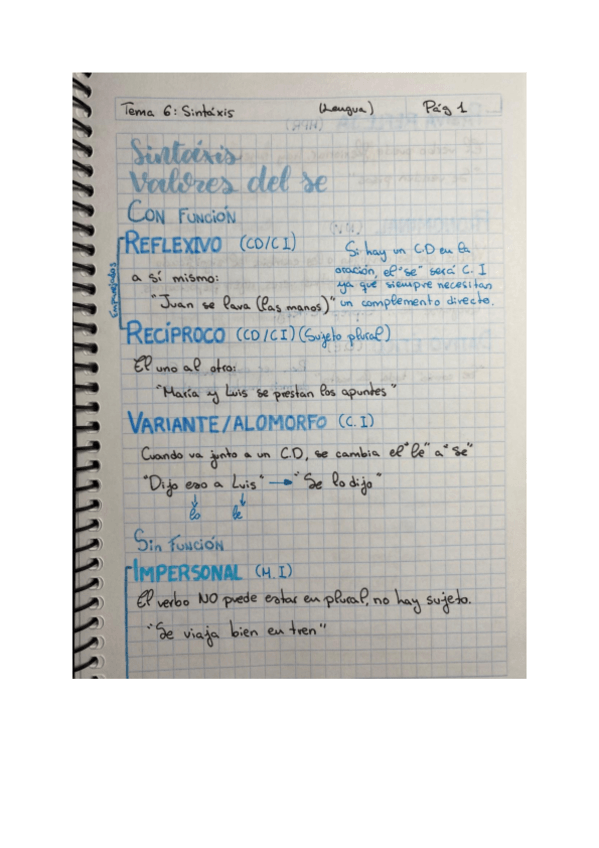 Tema 6: Sintáxis (Lengua) Pág 1
Sintáxis
Valores del se
CON FUNCIÓN
REFLEXIVO (CD/CI)
Si hay un C.D en la
oración, el "se" será C.I
ya que siempre necesitas
un complemento directo.
a sí mismo:
"Juan se lava (las manos)"
RECÍPROCO (CD/CI) (Sujeto plural)
El uno al otro:
"María y Luis se prestan los apuntes"
VARIANTE/ALOMORFO (C.I)
Cuando va junto a un C.D, se cambia el "le" a "se"
"Dijo eso a Luis" → "Se lo dijo"
lo le
Sin FUNCIÓN
IMPERSONAL (M.I)
El verbo NO puede estar en plural, no hay sujeto.
"Se viaja bien en tren"